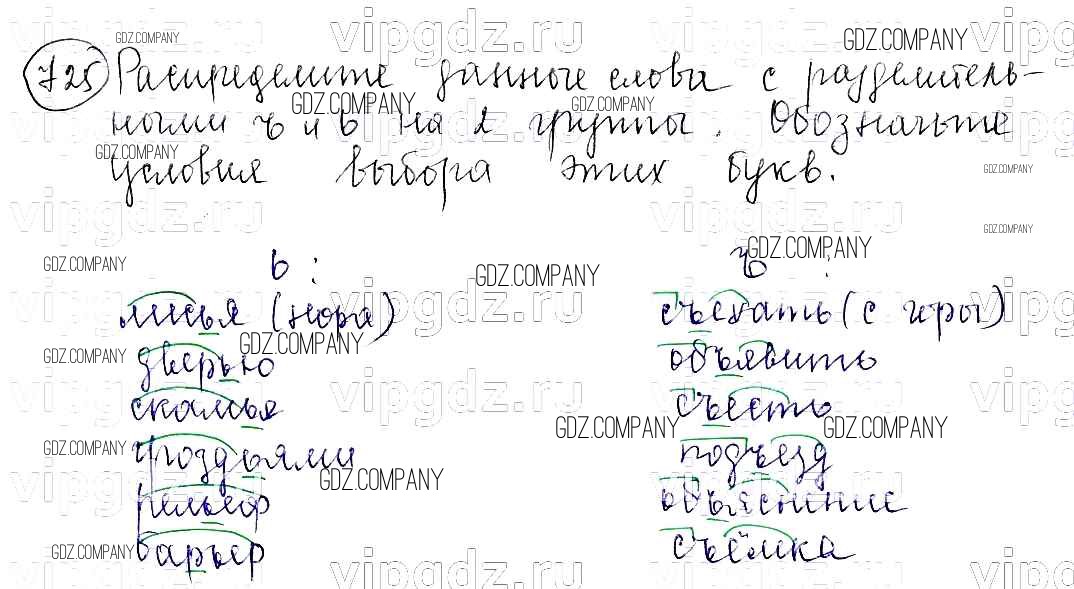 725 Распределите данные слова с разделитель-
ными ъ и ь на 2 группы. Обозначьте
условия выбора этих букв.
ь: ъ:
лисья (нора) съехать (с горы)
дверью объявить
скамья съесть
гроздьями подъезд
рельеф объяснение
барьер съёмка
vipgdz.ru
GDZ.COMPANY